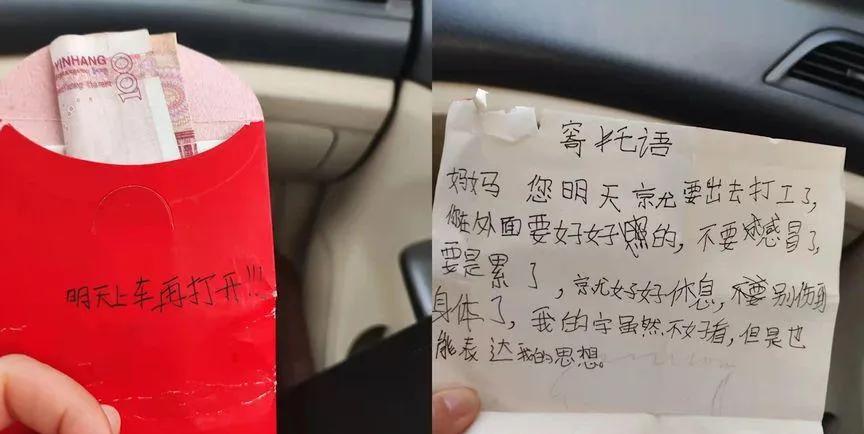 YINHANG
100
明天上车再打开!!!
寄托语
妈妈 您明天就要出去打工了,
你在外面要好好照的,不要感冒了,
要是累了,就好好休息,别伤到
身体了,我的字虽然不好看,但是也
能表达我的思想。